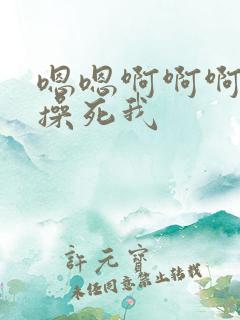 嗯嗯啊啊啊
操死我
許元寶
未经同意禁止转载